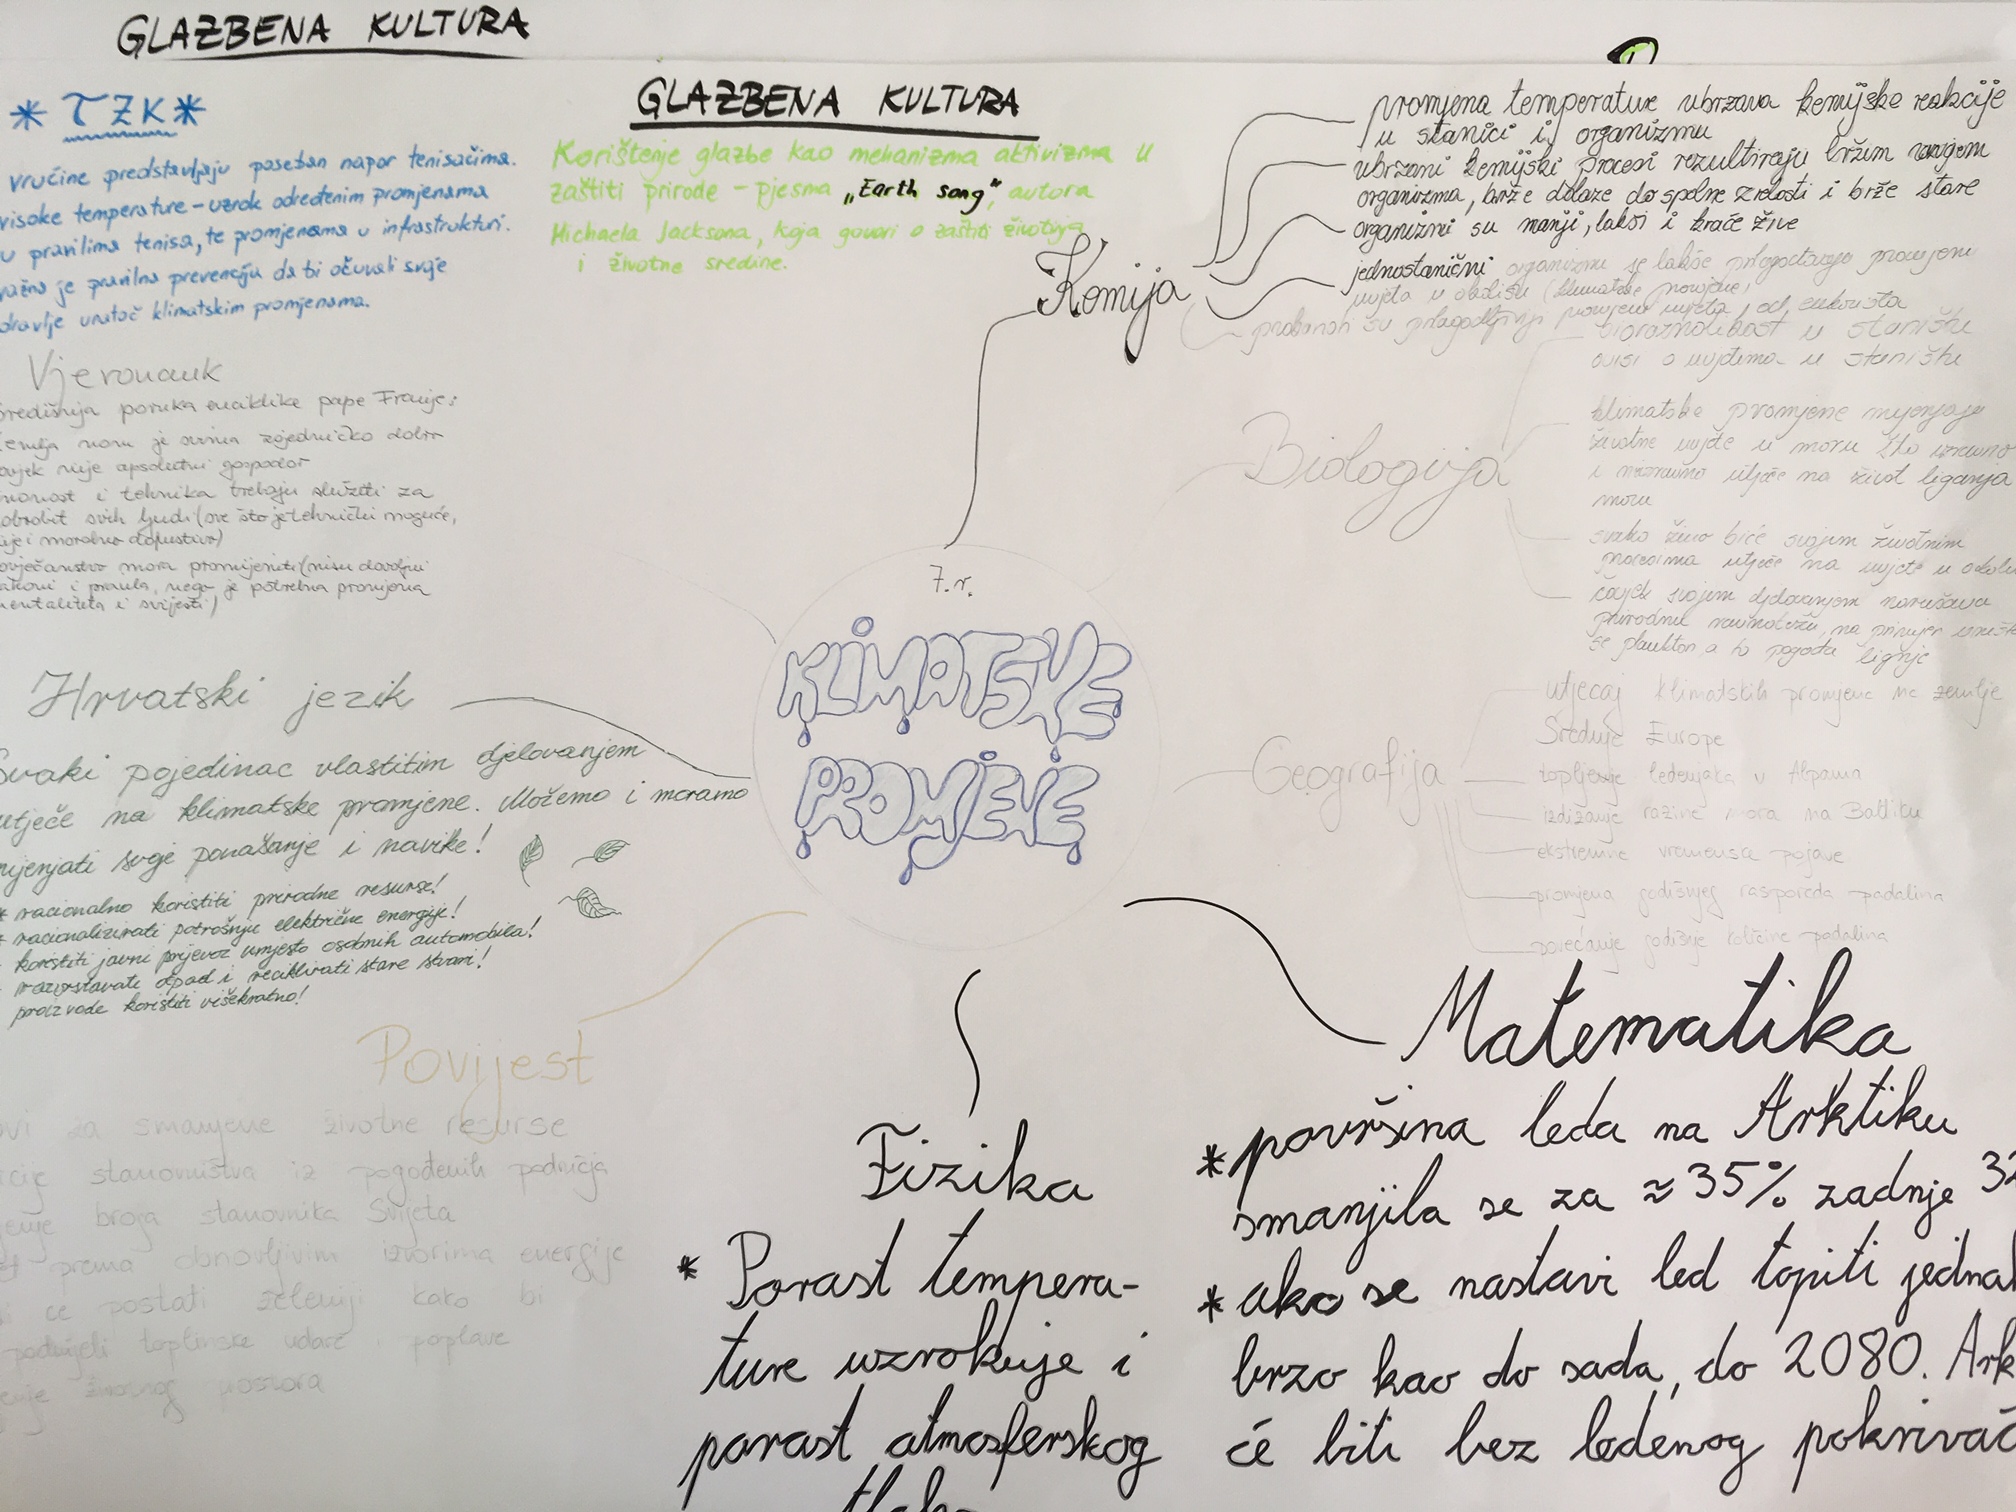 GLAZBENA KULTURA
* TZK *
vrućine predstavljaju poseban napor tenisačima.
visoke temperature - uzrok određenim promjenama
u pravilima tenisa, te promjenama u infrastrukturi.
važna je pravilna prevencija da bi očuvali svoje
zdravlje unatoč klimatskim promjenama.
GLAZBENA KULTURA
Korištenje glazbe kao mehanizma aktivizma u
zaštiti prirode - pjesma „Earth song", autora
Michaela Jacksona, koja govori o zaštiti životinja
i životne sredine.
Kemija
promjena temperature ubrzava kemijske reakcije
u stanici i organizmu
ubrzani kemijski procesi rezultiraju bržim razvojem
organizma, brže dolaze do spolne zrelosti i brže stare
organizmi su manji, lakši i kraće žive
jednostanični organizmi se lakše prilagođavaju promjeni
uvjeta u okolišu (klimatske promjene)
su prilagodljiviji promjeni uvjeta od eukariota
Vjeronauk
središnja poruka enciklike pape Franje:
zemlja nam je svima zajedničko dobro
čovjek nije apsolutni gospodar
znanost i tehnika trebaju služiti za
dobrobit svih ljudi (sve što je tehnički moguće,
nije i moralno dopustivo)
čovječanstvo mora promijeniti (nisu dovoljni
zakoni i pravila, nego je potrebna promjena
mentaliteta i svijesti)
Biologija
bioraznolikost u staništu
ovisi o uvjetima u staništu
klimatske promjene mijenjaju
životne uvjete u moru što izravno
i neizravno utječe na život liganja
moru
svako živo biće svojim životnim
procesima utječe na uvjete u okolišu
čovjek svojim djelovanjem narušava
prirodnu ravnotežu, na primjer
se plankton a to pogađa lignje
7.r.
KLIMATSKE
PROMJENE
Hrvatski jezik
Svaki pojedinac vlastitim djelovanjem
utječe na klimatske promjene. Možemo i moramo
mijenjati svoje ponašanje i navike!
* racionalno koristiti prirodne resurse!
* racionalizirati potrošnju električne energije!
koristiti javni prijevoz umjesto osobnih automobila!
razvrstavati otpad i reciklirati stare stvari!
proizvode koristiti višekratno!
Geografija
utjecaj klimatskih promjena na zemlje
Srednje Europe
topljenje ledenjaka u Alpama
izdizanje razine mora na Baltiku
ekstremne vremenske pojave
promjena godišnjeg rasporeda padalina
povećanje godišnje količine padalina
Povijest
za smanjene životne resurse
stanovništva iz pogođenih područja
broja stanovnika Svijeta
prema obnovljivim izvorima energije
će postati zeleniji kako bi
podnijeli toplinske udare i poplave
životnog prostora
Fizika
* Porast tempera-
ture uzrokuje i
porast atmosferskog
tlaka
Matematika
* površina leda na Arktiku
smanjila se za ≈ 35% zadnje 32
* ako se nastavi led topiti jednak
brzo kao do sada, do 2080. Ark
će biti bez ledenog pokrivač